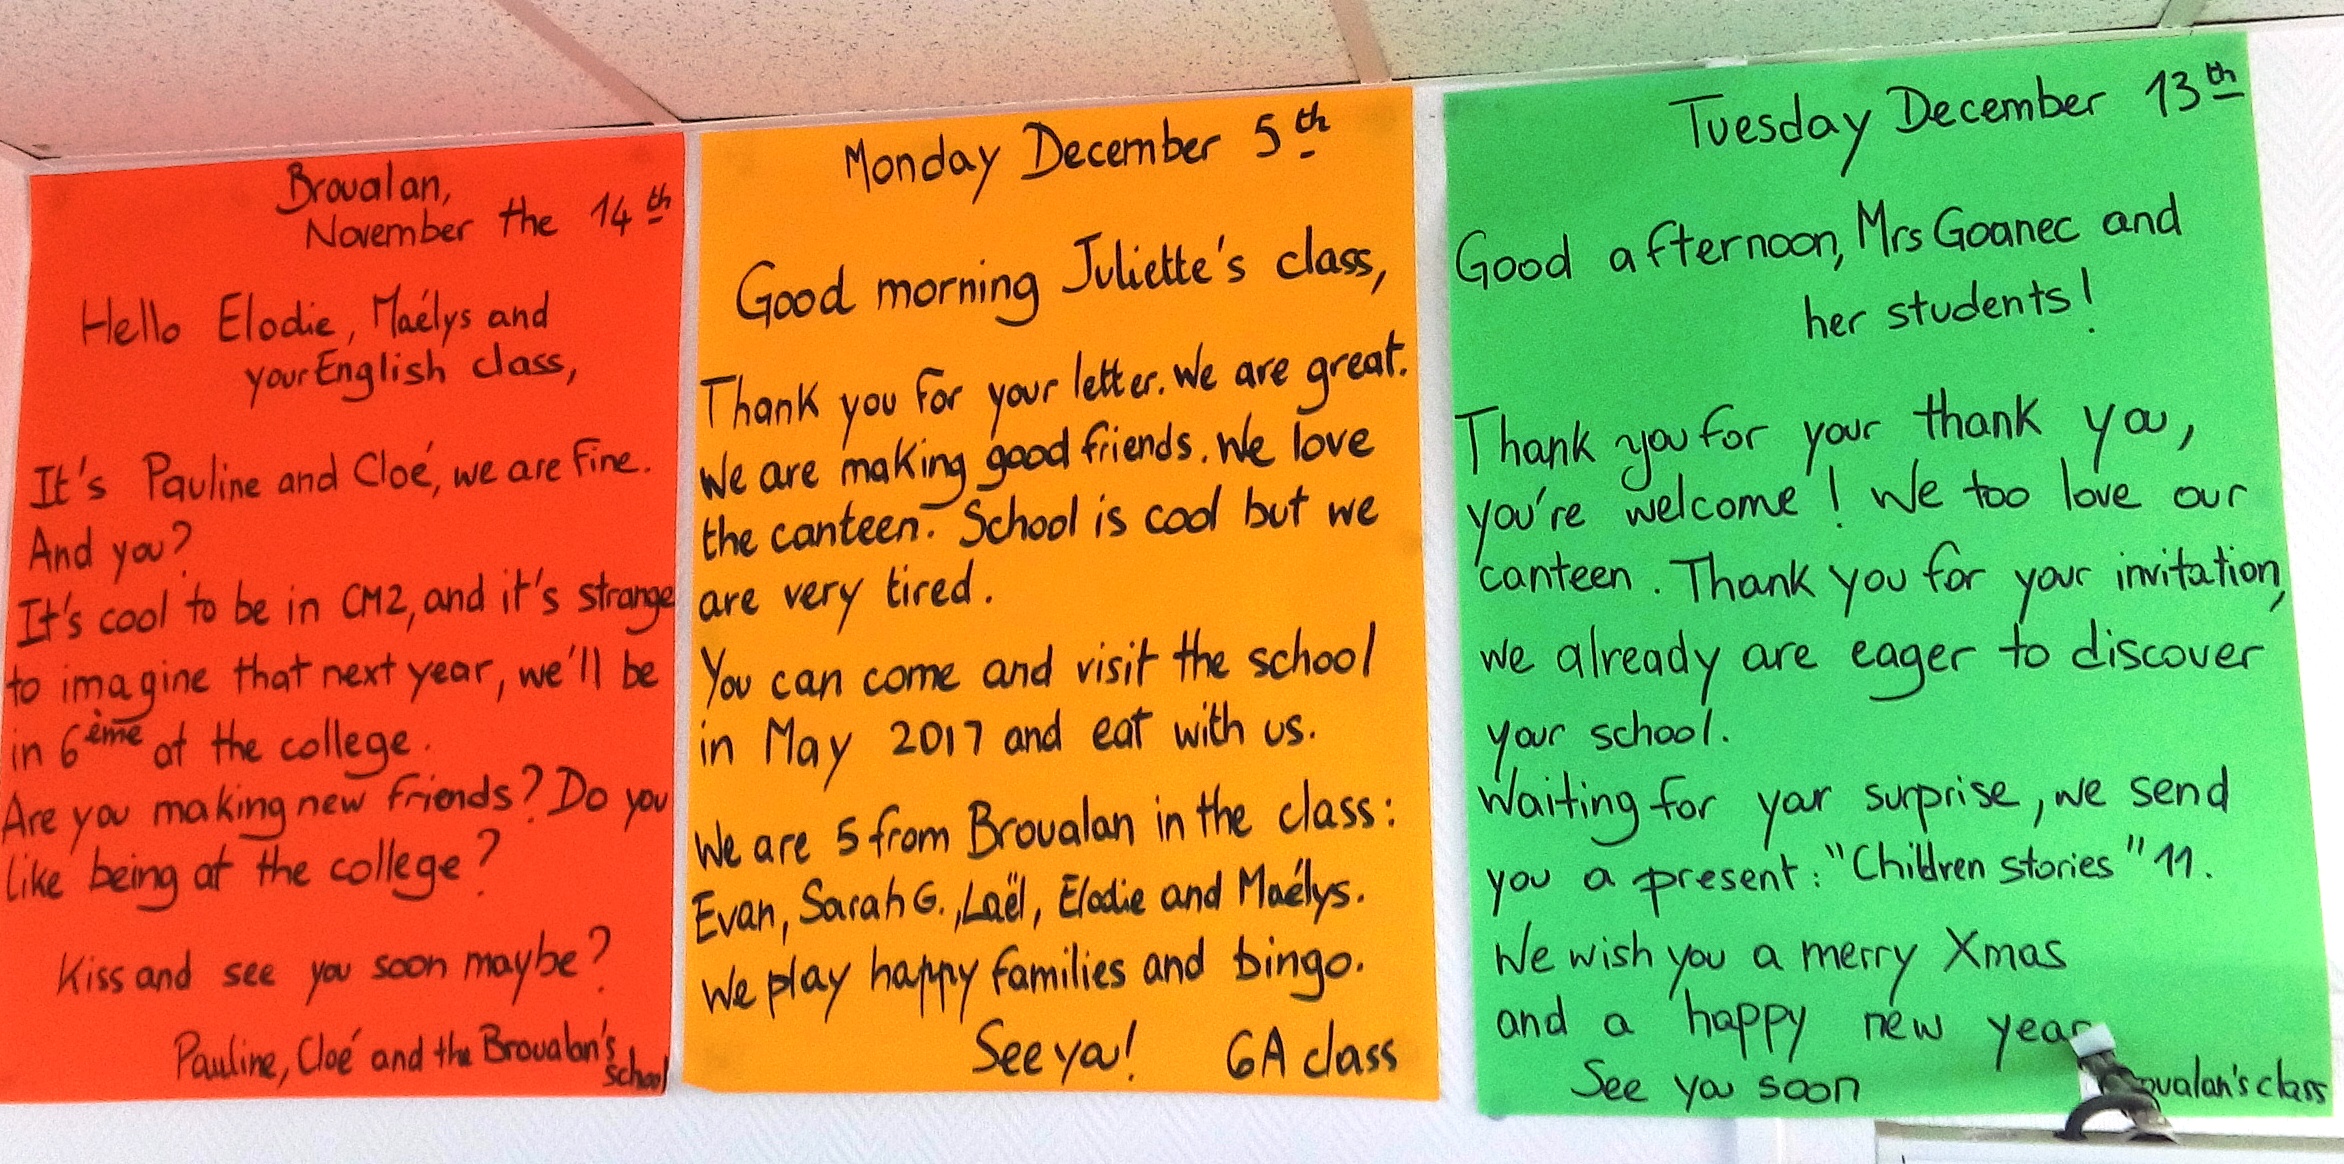 Broualan,
November the 14th
Hello Elodie, Maélys and
your English class,
It's Pauline and Cloé, we are fine.
And you?
It's cool to be in CM2, and it's strange
to imagine that next year, we'll be
in 6ème at the college.
Are you making new friends? Do you
like being at the college?
Kiss and see you soon maybe?
Pauline, Cloé and the Broualan's
school
Monday December 5th
Good morning Juliette's class,
Thank you for your letter. We are great.
We are making good friends. We love
the canteen. School is cool but we
are very tired.
You can come and visit the school
in May 2017 and eat with us.
We are 5 from Broualan in the class:
Evan, Sarah G., Laël, Elodie and Maélys.
We play happy families and bingo.
See ya! 6A class
Tuesday December 13th
Good afternoon, Mrs Goanec and
her students!
Thank you for your thank you,
you're welcome! We too love our
canteen. Thank you for your invitation,
we already are eager to discover
your school.
Waiting for your surprise, we send
you a present: "Children stories" 11.
We wish you a merry Xmas
and a happy new year
See you soon
class